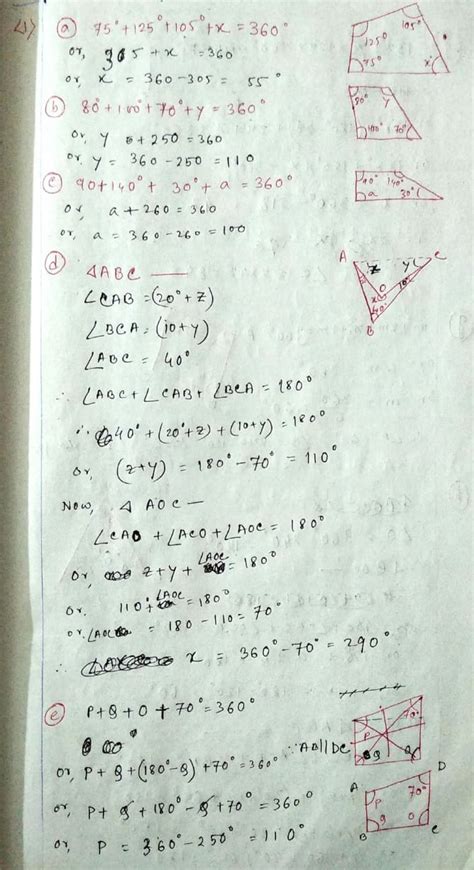 1)
(a) 75° + 125° + 105° + x = 360°
or, 305 + x = 360
or, x = 360 - 305 = 55°
105°
125°
75°
x
(b) 80° + 100° + 70° + y = 360°
or, y + 250 = 360
or, y = 360 - 250 = 110
80°
y
100°
70°
(c) 90 + 140° + 30° + a = 360°
or, a + 260 = 360
or, a = 360 - 260 = 100
90°
140°
a
30°
(d) △ABC —
∠CAB = (20° + z)
∠BCA = (10 + y)
∠ABC = 40°
∠ABC + ∠CAB + ∠BCA = 180°
∴ 40° + (20° + z) + (10 + y) = 180°
or, (z + y) = 180° - 70° = 110°
A
z
y
C
O
x
10°
40°
B
Now, △ AOC —
∠CAO + ∠ACO + ∠AOC = 180°
or, z + y + ∠AOC = 180°
or, 110 + ∠AOC = 180°
or, ∠AOC = 180 - 110 = 70°
∴ x = 360° - 70° = 290°
(e) P + Q + O + 70° = 360°
or, P + Q + (180° - Q) + 70° = 360° ∵ AB || DC
or, P + Q + 180° - Q + 70° = 360°
or, P = 360° - 250° = 110°
70°
P
Q
A
D
P
70°
Q
O
B
C